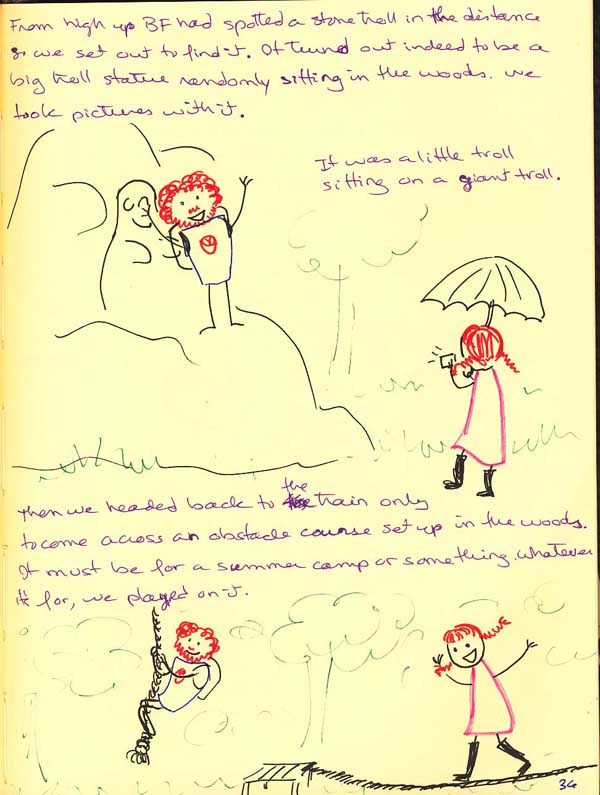 From high up BF had spotted a stone troll in the distance
& we set out to find it. It turned out indeed to be a
big troll statue randomly sitting in the woods. We
took pictures with it.
It was a little troll
sitting on a giant troll.
Then we headed back to the train only
to come across an obstacle course set up in the woods.
It must be for a summer camp or something. Whatever
it's for, we played on it.
34